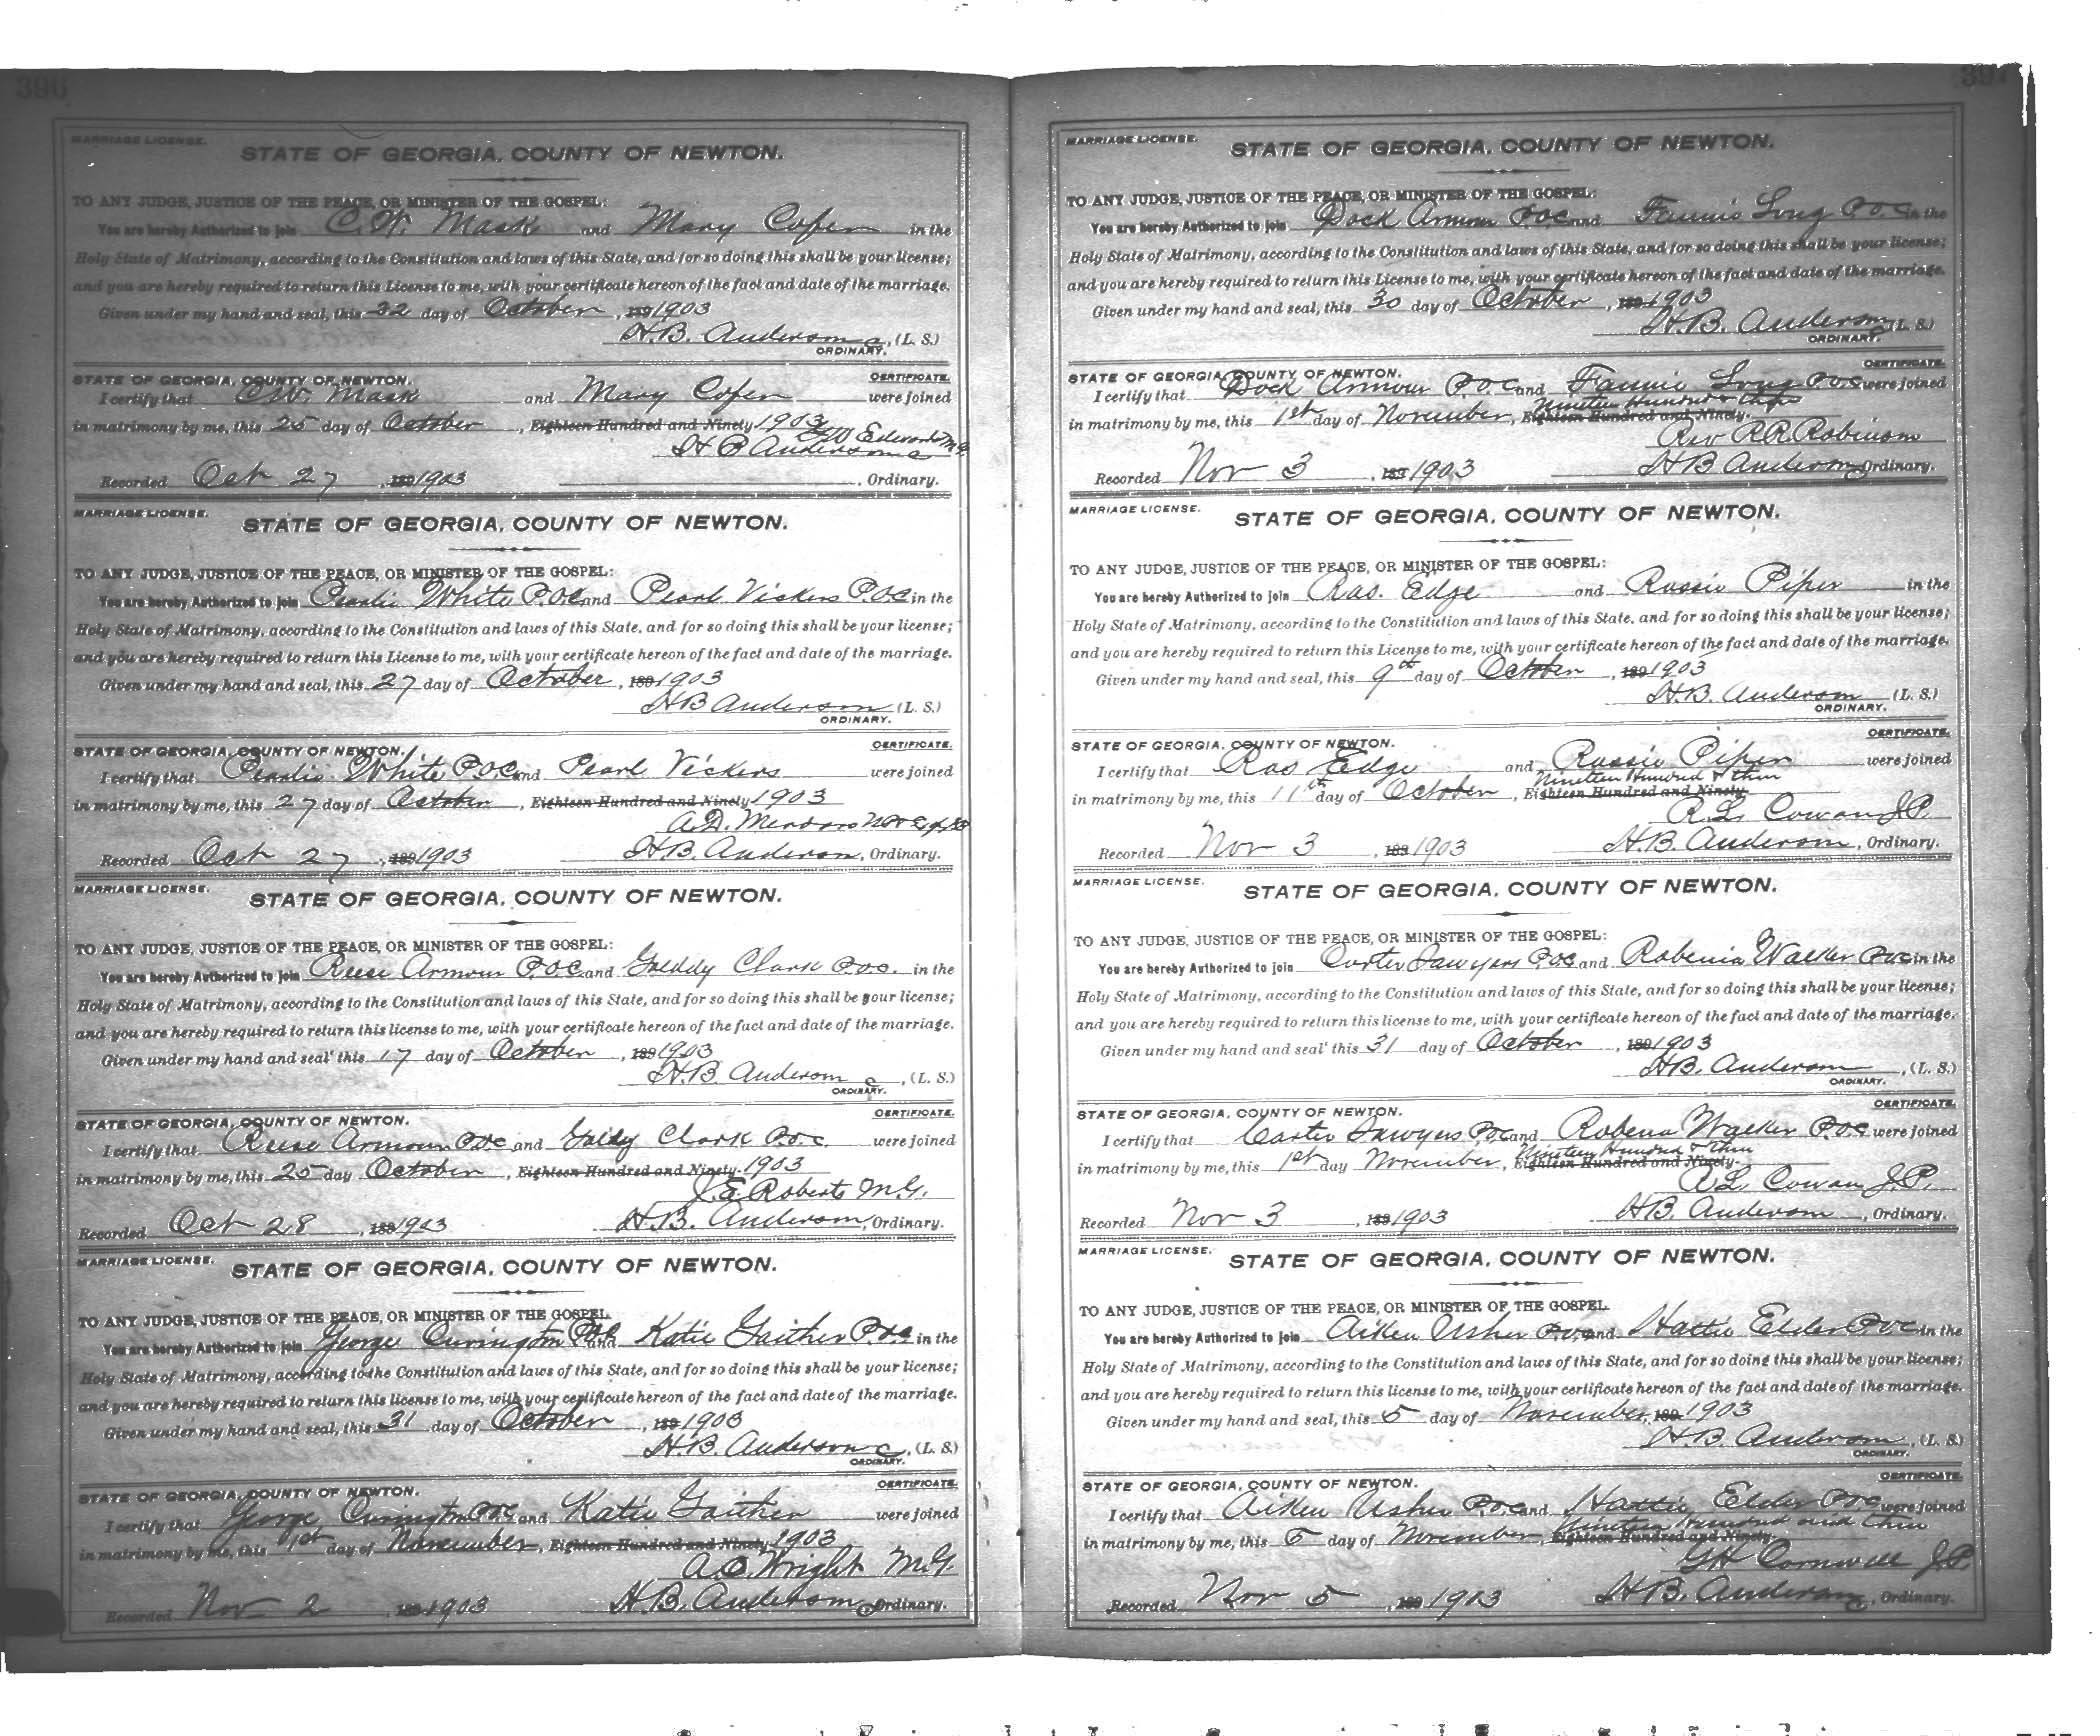 396
MARRIAGE LICENSE.
STATE OF GEORGIA, COUNTY OF NEWTON.
TO ANY JUDGE, JUSTICE OF THE PEACE, OR MINISTER OF THE GOSPEL:
You are hereby Authorized to join C. W. Mask and Mary Cofer in the
Holy State of Matrimony, according to the Constitution and laws of this State, and for so doing this shall be your license;
and you are hereby required to return this License to me, with your certificate hereon of the fact and date of the marriage.
Given under my hand and seal, this 22 day of October, 189 1903
H. B. Anderson, (L. S.)
ORDINARY.
STATE OF GEORGIA, COUNTY OF NEWTON. CERTIFICATE.
I certify that C. W. Mask and Mary Cofer were joined
in matrimony by me, this 25 day of October, Eighteen Hundred and Ninety 1903
Edwards M.G.
H B Anderson
Recorded Oct 27, 189 1903 , Ordinary.
MARRIAGE LICENSE.
STATE OF GEORGIA, COUNTY OF NEWTON.
TO ANY JUDGE, JUSTICE OF THE PEACE, OR MINISTER OF THE GOSPEL:
You are hereby Authorized to join Pearlie White P.O.C. and Pearl Vickers P.O.C in the
Holy State of Matrimony, according to the Constitution and laws of this State, and for so doing this shall be your license;
and you are hereby required to return this License to me, with your certificate hereon of the fact and date of the marriage.
Given under my hand and seal, this 27 day of October, 189 1903
H B Anderson (L. S.)
ORDINARY.
STATE OF GEORGIA, COUNTY OF NEWTON. CERTIFICATE.
I certify that Pearlie White P.O.C. and Pearl Vickers were joined
in matrimony by me, this 27 day of October, Eighteen Hundred and Ninety 1903
A. D. Meadors
Recorded Oct 27, 189 1903 H. B. Anderson, Ordinary.
MARRIAGE LICENSE.
STATE OF GEORGIA, COUNTY OF NEWTON.
TO ANY JUDGE, JUSTICE OF THE PEACE, OR MINISTER OF THE GOSPEL:
You are hereby Authorized to join Reese Armour P.O.C. and Clark P.O.C. in the
Holy State of Matrimony, according to the Constitution and laws of this State, and for so doing this shall be your license;
and you are hereby required to return this license to me, with your certificate hereon of the fact and date of the marriage.
Given under my hand and seal this 17 day of October, 189 1903
H. B. Anderson, (L. S.)
ORDINARY.
STATE OF GEORGIA, COUNTY OF NEWTON. CERTIFICATE.
I certify that Reese Armour P.O.C and Clark P.O.C. were joined
in matrimony by me, this 25 day October, Eighteen Hundred and Ninety. 1903
J. E. Roberts M.G.
Recorded Oct 28, 189 1903 H. B. Anderson, Ordinary.
MARRIAGE LICENSE.
STATE OF GEORGIA, COUNTY OF NEWTON.
TO ANY JUDGE, JUSTICE OF THE PEACE, OR MINISTER OF THE GOSPEL
You are hereby Authorized to join George Curington P.O.C and Katie Gaither P.O.C. in the
Holy State of Matrimony, according to the Constitution and laws of this State, and for so doing this shall be your license;
and you are hereby required to return this license to me, with your certificate hereon of the fact and date of the marriage.
Given under my hand and seal, this 31 day of October, 189 1903
H. B. Anderson, (L. S.)
ORDINARY.
STATE OF GEORGIA, COUNTY OF NEWTON. CERTIFICATE.
I certify that George Curington P.O.C and Katie Gaither were joined
in matrimony by me, this 1st day of November, Eighteen Hundred and Ninety 1903
A. C. Wright M.G.
Recorded Nov 2, 189 1903 H. B. Anderson, Ordinary.
397
MARRIAGE LICENSE.
STATE OF GEORGIA, COUNTY OF NEWTON.
TO ANY JUDGE, JUSTICE OF THE PEACE, OR MINISTER OF THE GOSPEL:
You are hereby Authorized to join Dock Armour P.O.C. and Fannie Long P.O.C. in the
Holy State of Matrimony, according to the Constitution and laws of this State, and for so doing this shall be your license;
and you are hereby required to return this License to me, with your certificate hereon of the fact and date of the marriage.
Given under my hand and seal, this 30 day of October, 189 1903
H. B. Anderson (L. S.)
ORDINARY.
STATE OF GEORGIA, COUNTY OF NEWTON. CERTIFICATE.
I certify that Dock Armour P.O.C and Fannie Long P.O.C were joined
Nineteen Hundred &
in matrimony by me, this 1st day of November, Eighteen Hundred and Ninety.
Rev R. R. Robinson
Recorded Nov 3, 189 1903 H B Anderson Ordinary.
MARRIAGE LICENSE.
STATE OF GEORGIA, COUNTY OF NEWTON.
TO ANY JUDGE, JUSTICE OF THE PEACE, OR MINISTER OF THE GOSPEL:
You are hereby Authorized to join Ras. Edge and Russie Piper in the
Holy State of Matrimony, according to the Constitution and laws of this State, and for so doing this shall be your license;
and you are hereby required to return this License to me, with your certificate hereon of the fact and date of the marriage.
Given under my hand and seal, this 9th day of October, 189 1903
H. B. Anderson (L. S.)
ORDINARY.
STATE OF GEORGIA, COUNTY OF NEWTON. CERTIFICATE.
I certify that Ras Edge and Russie Piper were joined
Nineteen Hundred & three
in matrimony by me, this 11th day of October, Eighteen Hundred and Ninety
R. L. Cowan J.P.
Recorded Nov 3, 189 1903 H. B. Anderson, Ordinary.
MARRIAGE LICENSE.
STATE OF GEORGIA, COUNTY OF NEWTON.
TO ANY JUDGE, JUSTICE OF THE PEACE, OR MINISTER OF THE GOSPEL:
You are hereby Authorized to join Carter Sawyers P.O.C and Robenia Walker P.O.C in the
Holy State of Matrimony, according to the Constitution and laws of this State, and for so doing this shall be your license;
and you are hereby required to return this license to me, with your certificate hereon of the fact and date of the marriage.
Given under my hand and seal this 31 day of October, 189 1903
H. B. Anderson, (L. S.)
ORDINARY.
STATE OF GEORGIA, COUNTY OF NEWTON. CERTIFICATE.
I certify that Carter Sawyers P.O.C and Robena Walker P.O.C were joined
Nineteen Hundred & three
in matrimony by me, this 1st day November, Eighteen Hundred and Ninety.
R. L. Cowan J.P.
Recorded Nov 3, 189 1903 H. B. Anderson, Ordinary.
MARRIAGE LICENSE.
STATE OF GEORGIA, COUNTY OF NEWTON.
TO ANY JUDGE, JUSTICE OF THE PEACE, OR MINISTER OF THE GOSPEL.
You are hereby Authorized to join Aiken Usher P.O.C and Hattie Elder P.O.C in the
Holy State of Matrimony, according to the Constitution and laws of this State, and for so doing this shall be your license;
and you are hereby required to return this license to me, with your certificate hereon of the fact and date of the marriage.
Given under my hand and seal, this 5 day of November, 189 1903
H. B. Anderson, (L. S.)
ORDINARY.
STATE OF GEORGIA, COUNTY OF NEWTON. CERTIFICATE.
I certify that Aiken Usher P.O.C and Hattie Elder P.O.C were joined
Nineteen Hundred and three
in matrimony by me, this 5 day of November, Eighteen Hundred and Ninety.
G H Cornwell J.P.
Recorded Nov 5, 189 1903 H. B. Anderson, Ordinary.